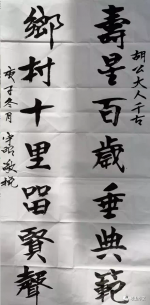 胡公大人千古
壽星百歲垂典範
鄉村十里留賢聲
庚子冬月
敬挽